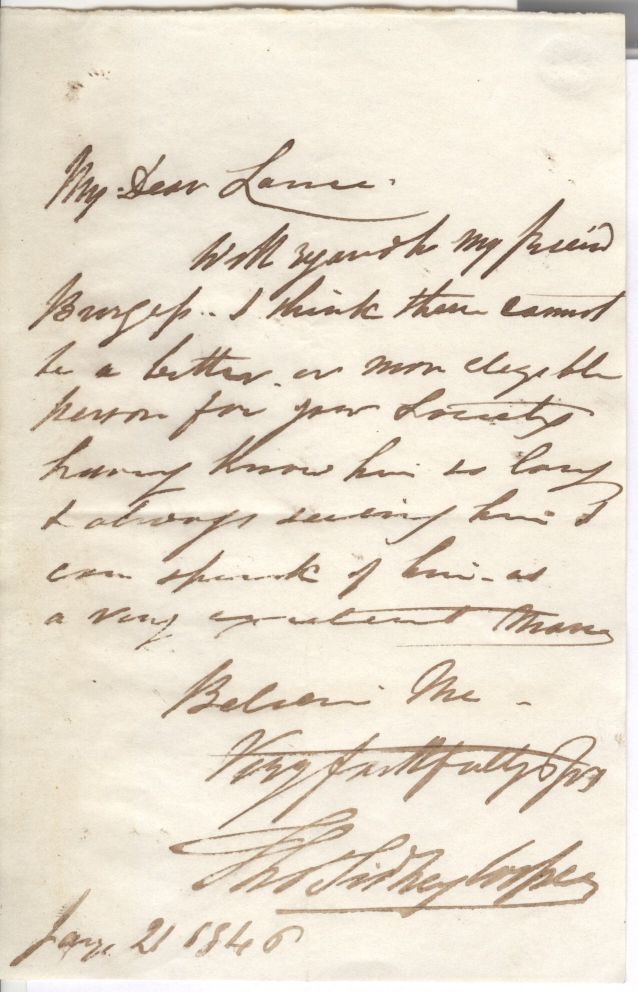 My Dear Lance.
With regard to my friend
Burgess.. I think there cannot
be a better or more elegible
person for your Society
having know him so long
& always seeing him I
can speak of him as
a very excellent man
Believe Me -
Very faithfully Yrs
Thos Sidney Cooper
Jany 21 1846